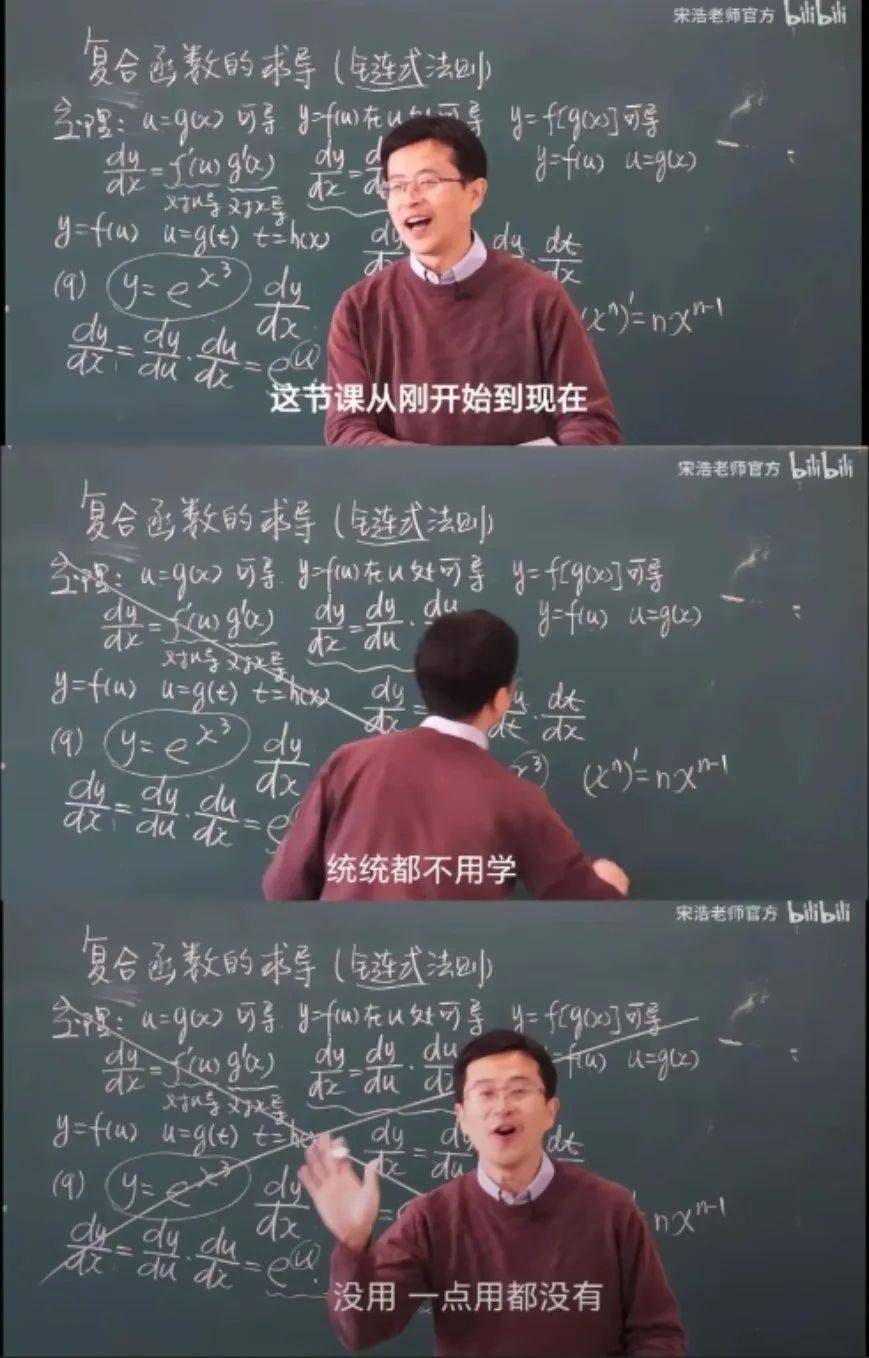 宋浩老师官方 bilibili
复合函数的求导(链式法则)
定理: u=g(x)可导 y=f(u)在u处可导 y=f[g(x)]可导
dy/dx=f'(u)g'(x) dy/dx= y=f(u) u=g(x)
对u导 对x导
y=f(u) u=g(t) t=h(x) dt/dx
(9) y=e^x³ dy/dx (xⁿ)'=nxⁿ⁻¹
dy/dx=dy/du·du/dx=e^u
这节课从刚开始到现在
宋浩老师官方 bilibili
复合函数的求导(链式法则)
定理: u=g(x)可导 y=f(u)在u处可导 y=f[g(x)]可导
dy/dx=f'(u)g'(x) dy/dx=dy/du·du y=f(u) u=g(x)
对u导 对x导
y=f(u) u=g(t) t=h(x) dy/dx= dt·dt/dx
(9) y=e^x³ dy/dx x³) (xⁿ)'=nxⁿ⁻¹
dy/dx=dy/du·du/dx=e
统统都不用学
宋浩老师官方 bilibili
复合函数的求导(链式法则)
定理: u=g(x)可导 y=f(u)在u处可导 y=f[g(x)]可导
dy/dx=f'(u)g'(x) dy/dx=dy/du·du/d =f(u) u=g(x)
对u导 对x导
y=f(u) u=g(t) t=h(x) dy/dx= dt
(9) y=e^x³ dy/dx = nxⁿ⁻¹
dy/dx=dy/du·du/dx=e^u
没用 一点用都没有